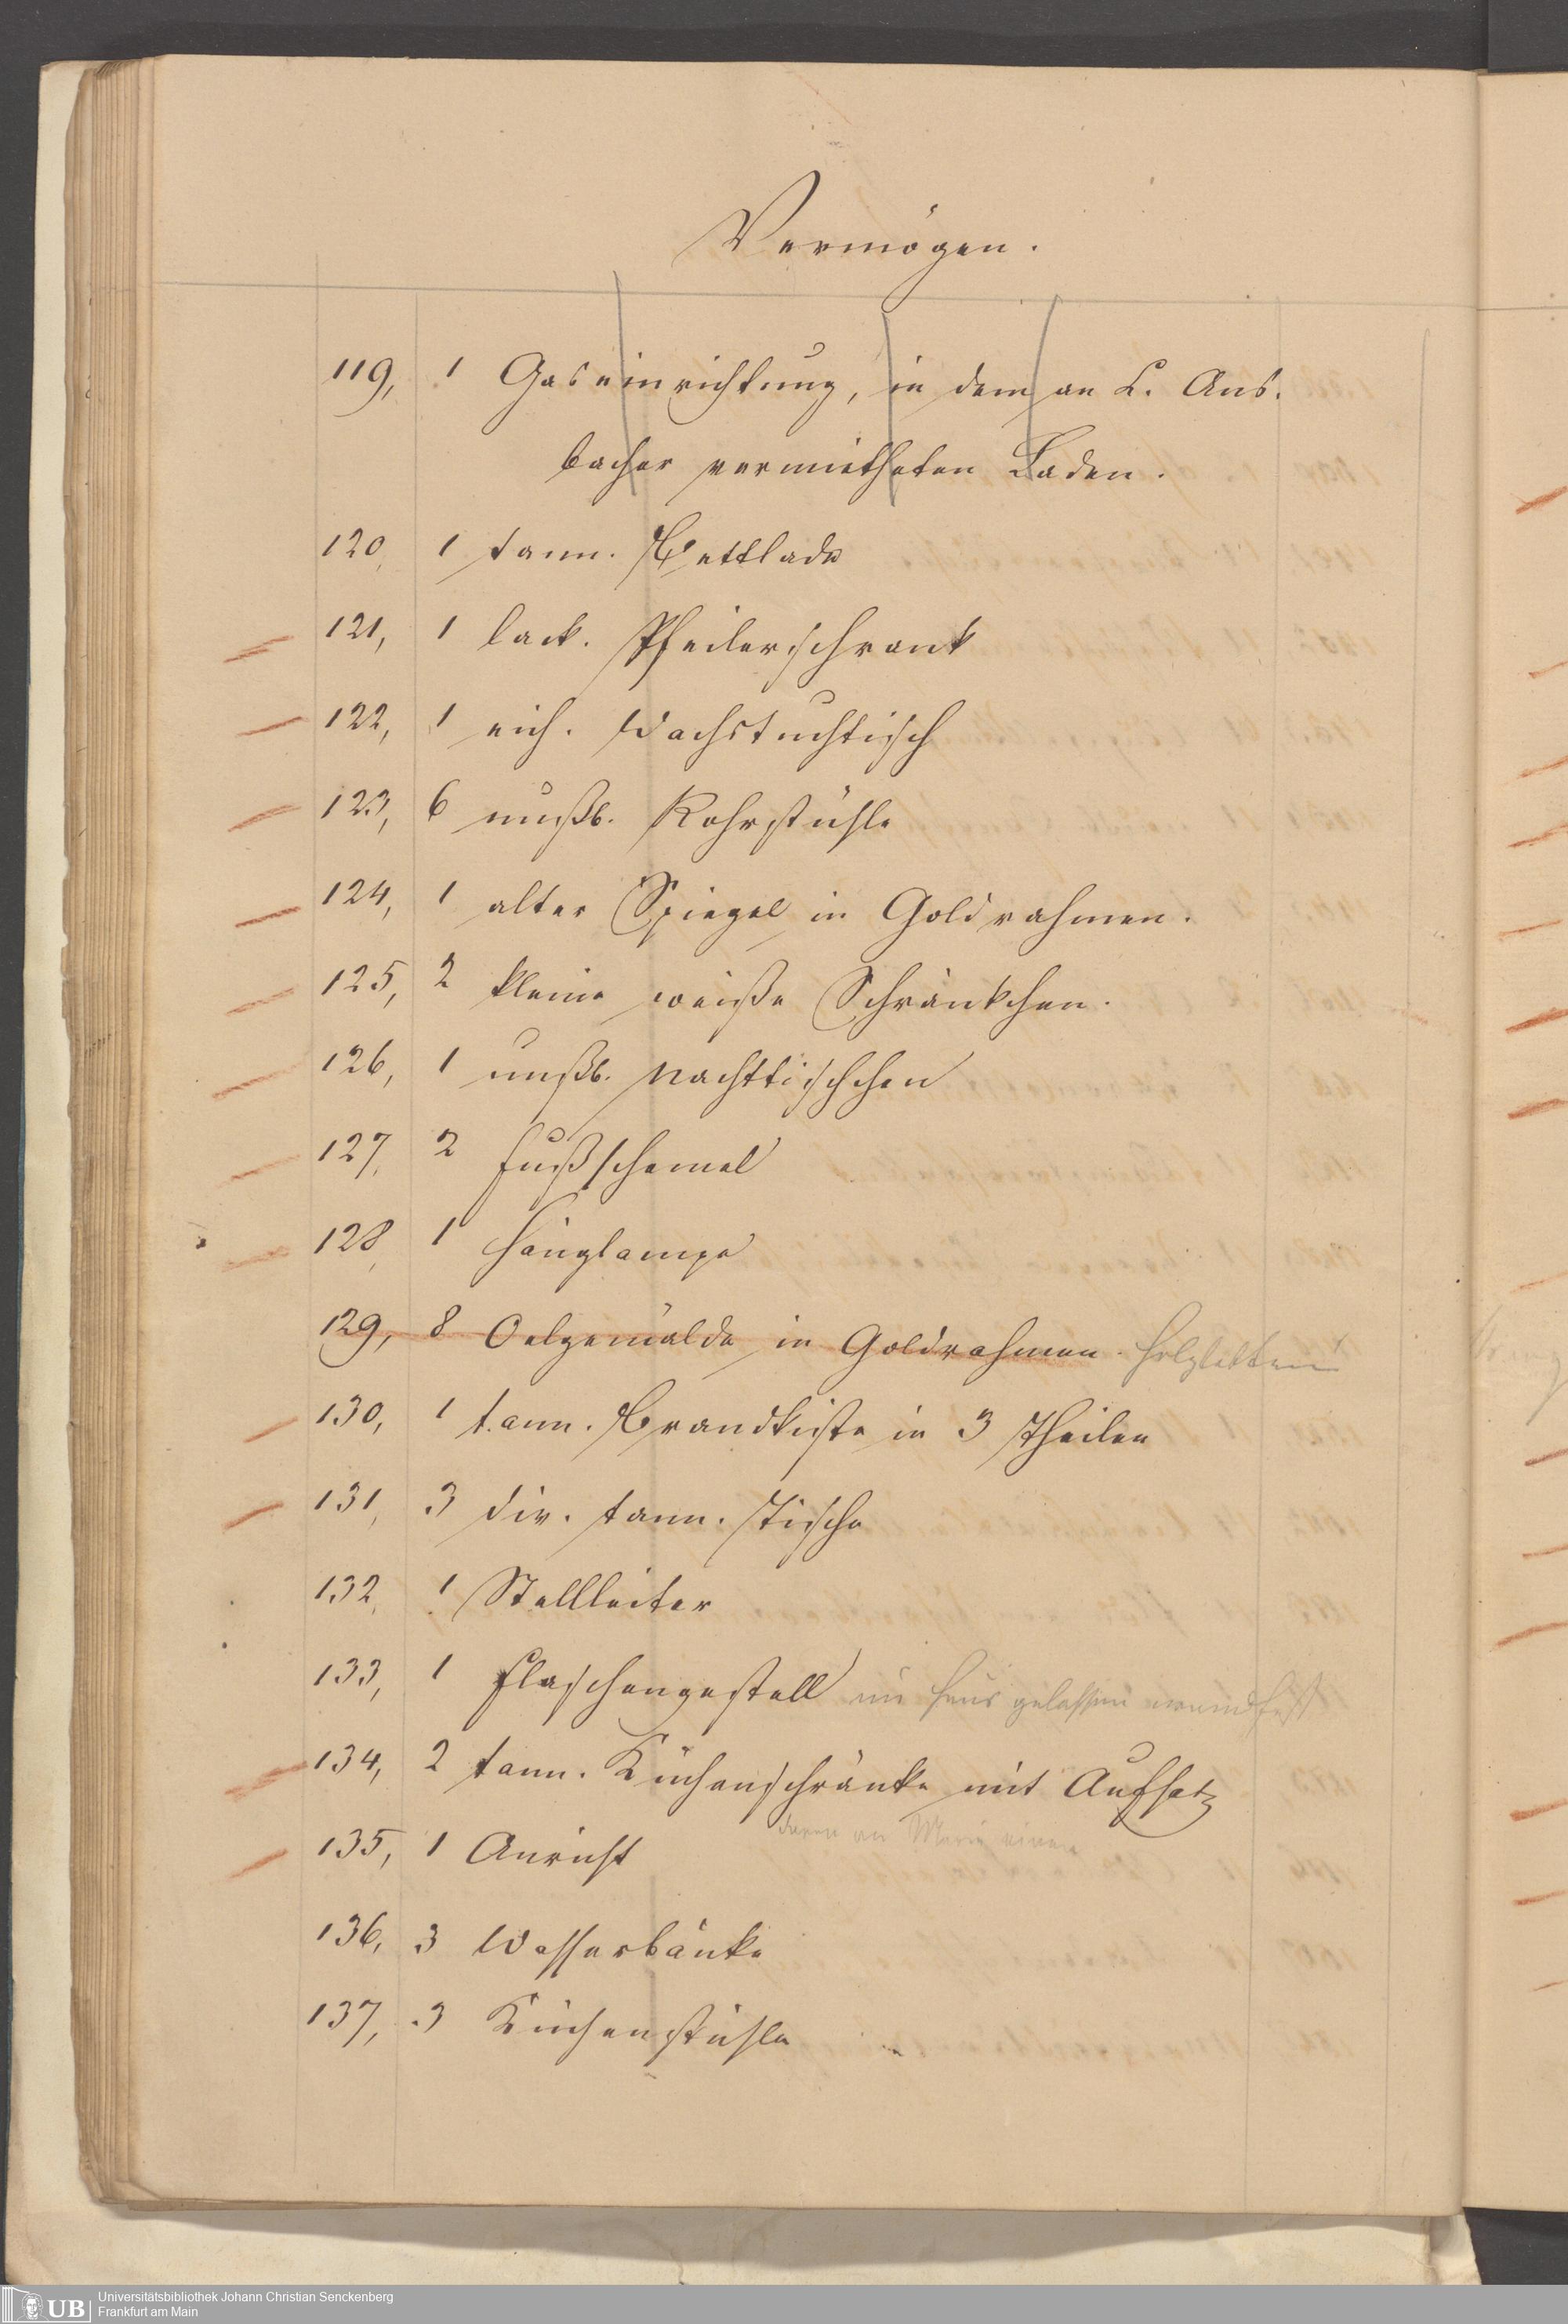 Vermögen.
119, 1 Gaseinrichtung, in dem an L. Ans.
bacher vermietheten Laden.
120, 1 tann. Bettlade
121, 1 lack. Pfeilerschrank
122, 1 eich. Wachstuchtisch
123, 6 nußb. Rohrstühle
124, 1 alter Spiegel in Goldrahmen.
125, 2 kleine weiße Schränkchen.
126, 1 nußb. Nachttischchen
127, 2 Fußschemel
128, 1 Hänglampe
129, 8 Oelgemälde in Goldrahmen.
130, 1 tann. Brandkiste in 3 Theilen
131, 3 div. tann. Tische
132, 1 Stellleiter
133, 1 Flaschengestell im Haus gelassen
134, 2 tann. Küchenschränke mit Aufsatz
135, 1 Anricht
136, 3 Wasserbänke
137, 3 Küchenstühle
UB Universitätsbibliothek Johann Christian Senckenberg
Frankfurt am Main